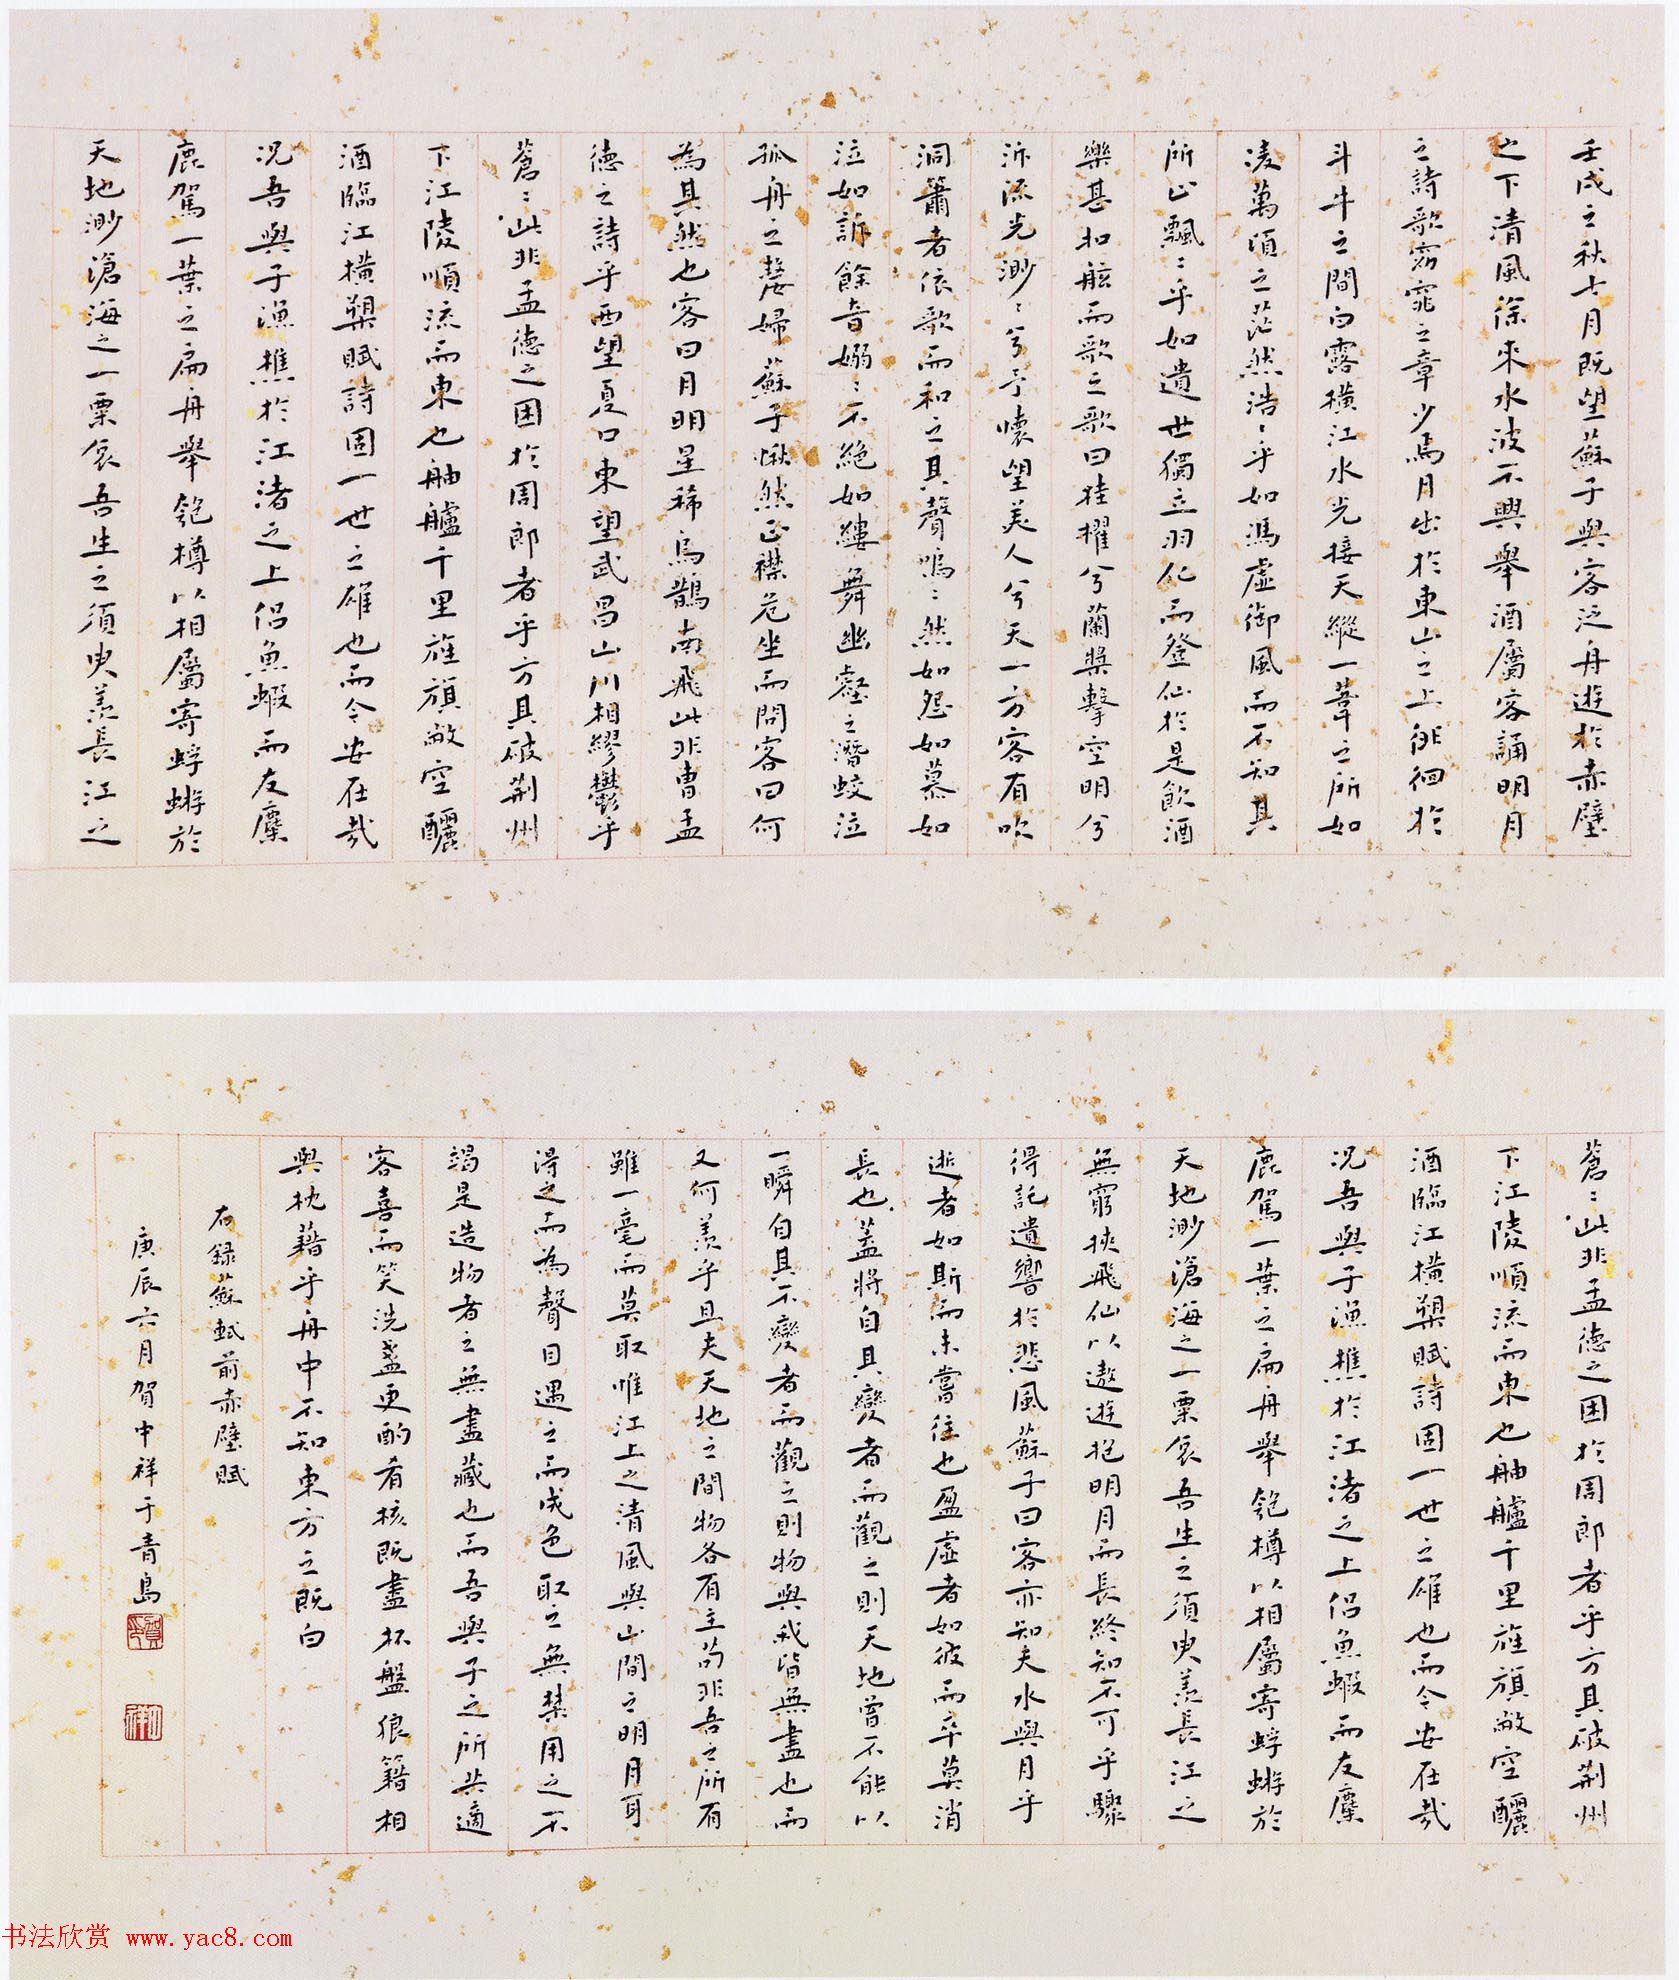 壬戌之秋七月既望蘇子與客泛舟遊於赤壁
之下清風徐來水波不興舉酒屬客誦明月
之詩歌窈窕之章少焉月出於東山之上徘徊於
斗牛之間白露橫江水光接天縱一葦之所如
凌萬頃之茫然浩〻乎如馮虛御風而不知其
所止飄〻乎如遺世獨立羽化而登仙於是飲酒
樂甚扣舷而歌之歌曰桂櫂兮蘭槳擊空明兮
泝流光渺〻兮予懷望美人兮天一方客有吹
洞簫者依歌而和之其聲嗚〻然如怨如慕如
泣如訴餘音嫋〻不絕如縷舞幽壑之潛蛟泣
孤舟之嫠婦蘇子愀然正襟危坐而問客曰何
為其然也客曰月明星稀烏鵲南飛此非曹孟
德之詩乎西望夏口東望武昌山川相繆鬱乎
蒼〻此非孟德之困於周郎者乎方其破荊州
下江陵順流而東也舳艫千里旌旗蔽空釃
酒臨江橫槊賦詩固一世之雄也而今安在哉
況吾與子漁樵於江渚之上侶魚蝦而友麋
鹿駕一葉之扁舟舉匏樽以相屬寄蜉蝣於
天地渺滄海之一粟哀吾生之須臾羨長江之
蒼〻此非孟德之困於周郎者乎方其破荊州
下江陵順流而東也舳艫千里旌旗蔽空釃
酒臨江橫槊賦詩固一世之雄也而今安在哉
況吾與子漁樵於江渚之上侶魚蝦而友麋
鹿駕一葉之扁舟舉匏樽以相屬寄蜉蝣於
天地渺滄海之一粟哀吾生之須臾羨長江之
無窮挾飛仙以遨遊抱明月而長終知不可乎驟
得託遺響於悲風蘇子曰客亦知夫水與月乎
逝者如斯而未嘗往也盈虛者如彼而卒莫消
長也蓋將自其變者而觀之則天地曾不能以
一瞬自其不變者而觀之則物與我皆無盡也而
又何羨乎且夫天地之間物各有主苟非吾之所有
雖一毫而莫取惟江上之清風與山間之明月耳
得之而為聲目遇之而成色取之無禁用之不
竭是造物者之無盡藏也而吾與子之所共適
客喜而笑洗盞更酌肴核既盡杯盤狼籍相
與枕藉乎舟中不知東方之既白
右錄蘇軾前赤壁賦
庚辰六月賀中祥于青島
书法欣赏 www.yac8.com